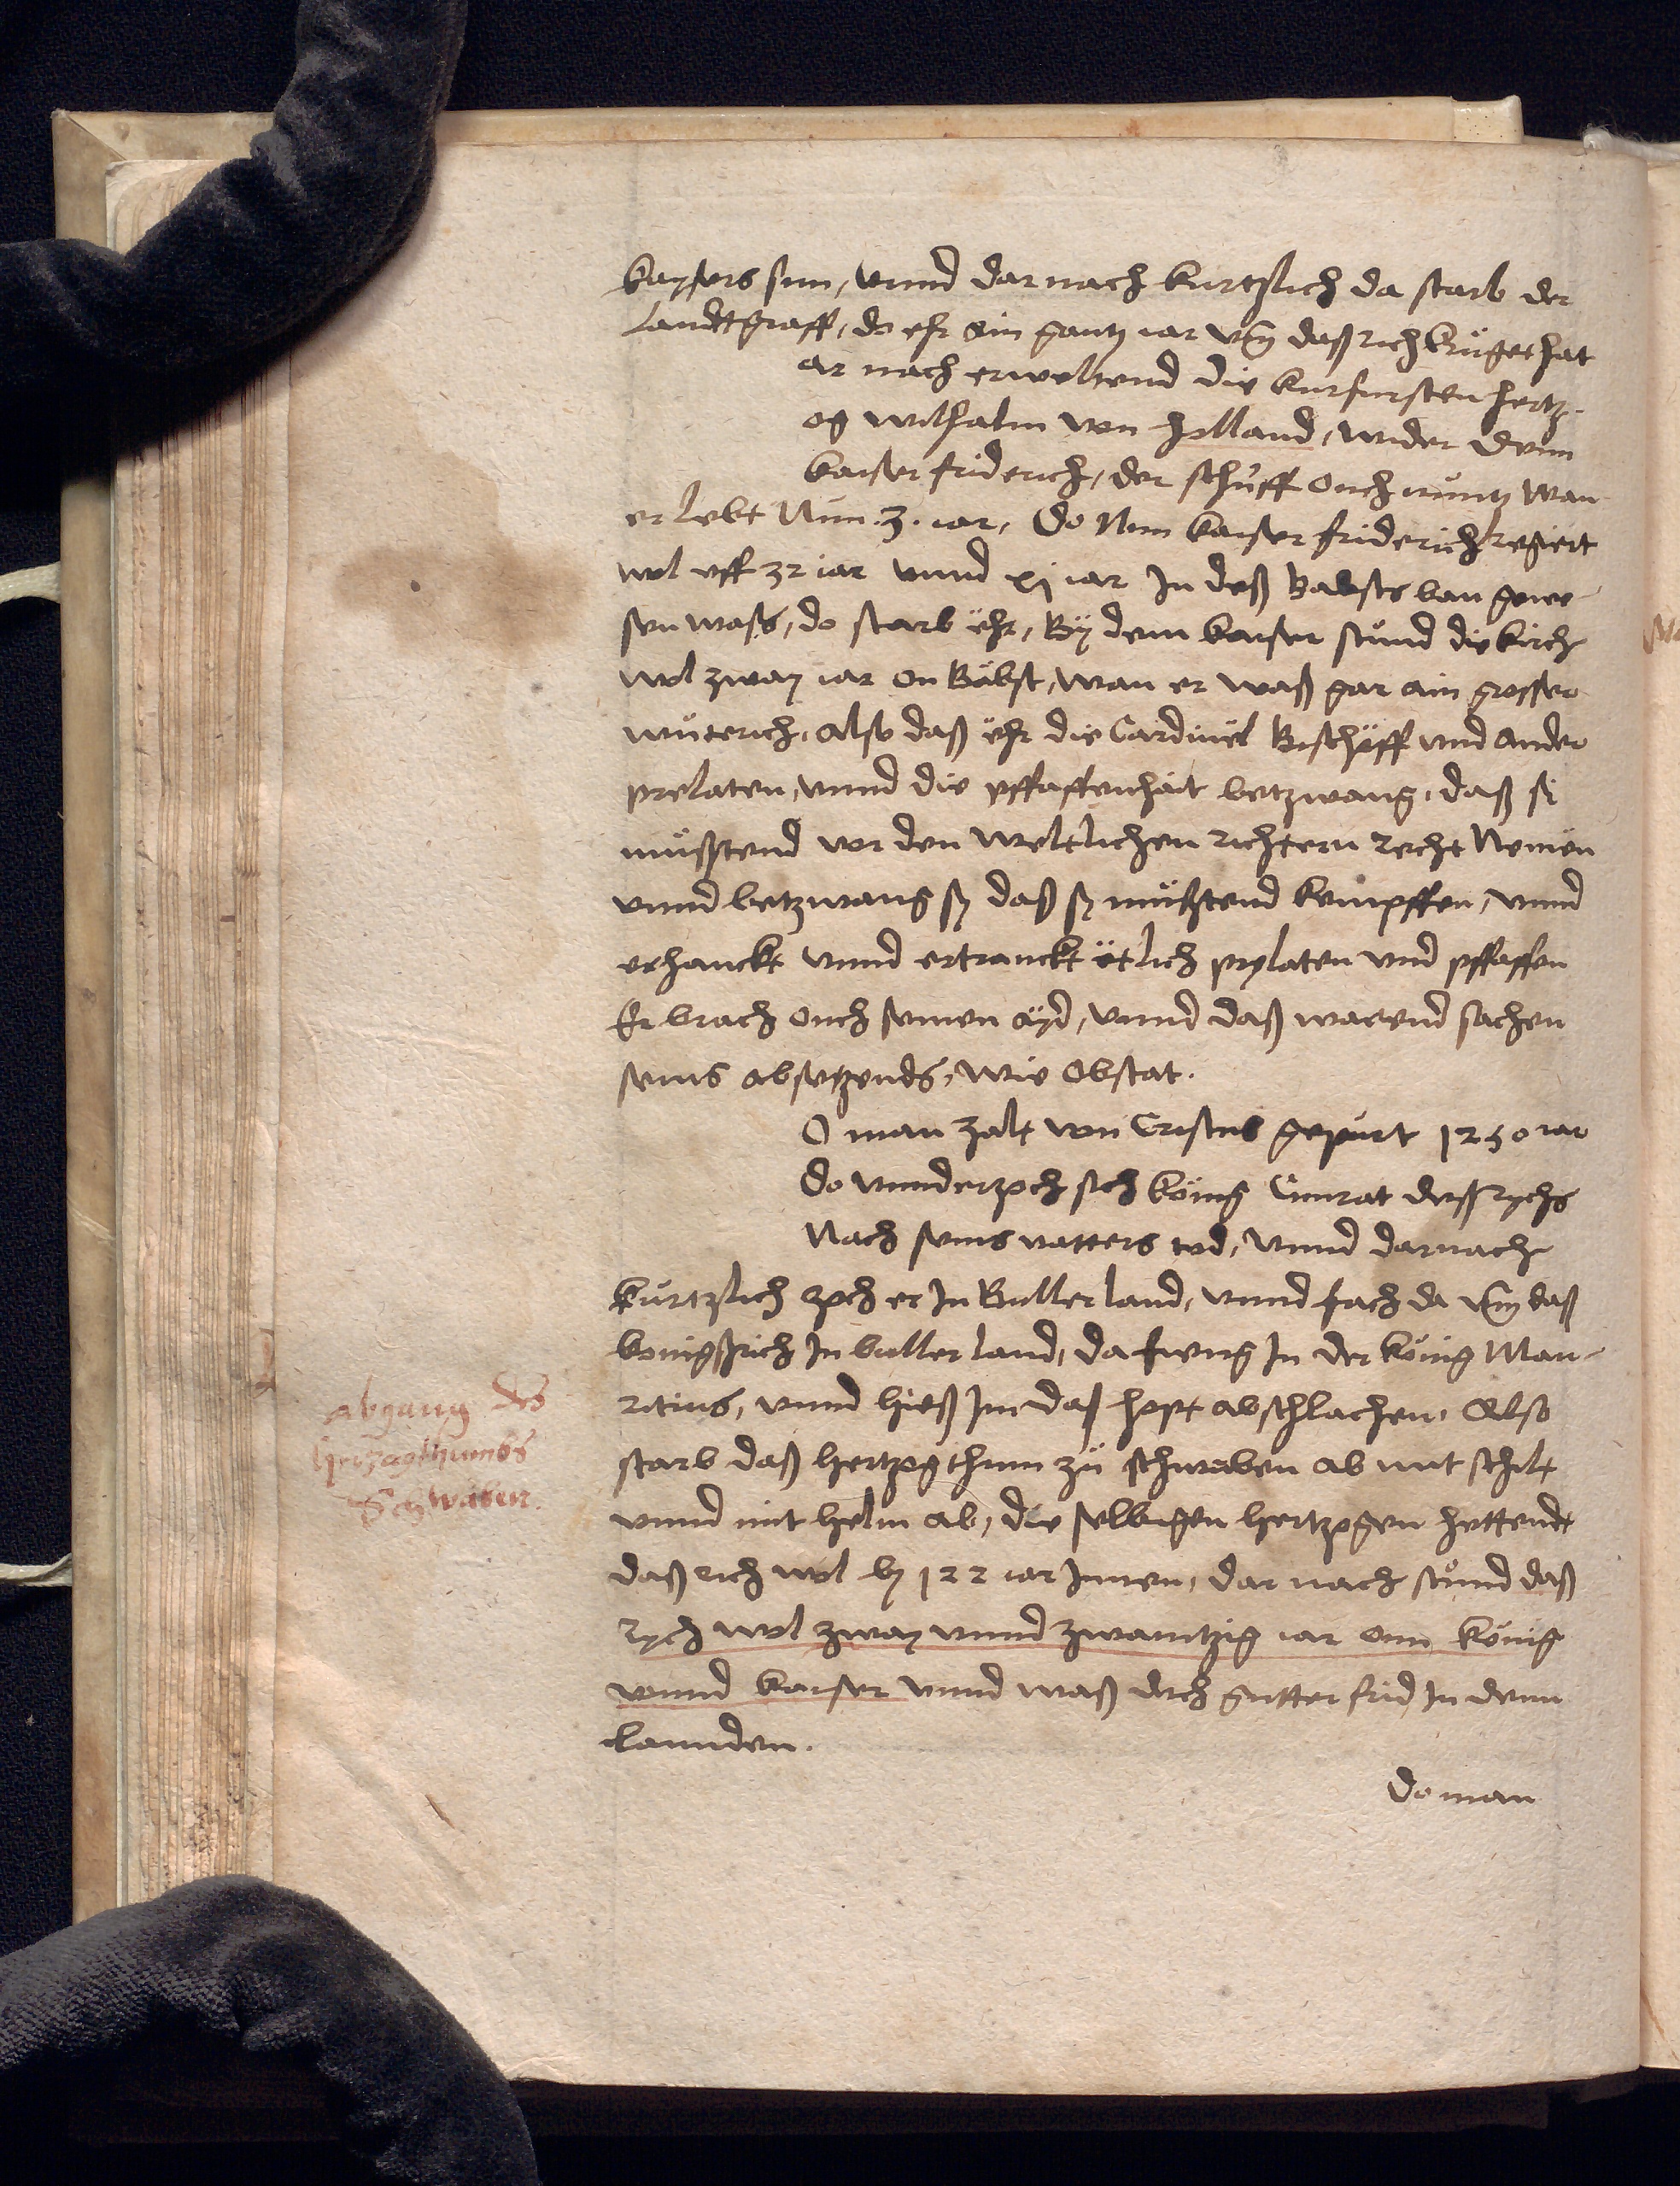 kaysers sun, vnnd dar nach kurtzlich da starb der
Landtgraff, do ehr ain gantz iar vm daß rich krüget hat
ar nach erweltend die kurfursten hertz-
og wilhalm von Holland, wider denn
kaiser friderich, der schüff ouch nüntz wan
er lebt Nun .3. iar, Do Nun kaiser friderich regiert
wol vff 32 iar vnnd xj iar In deß Babsts ban gewe-
sen waß, do starb ehr, By dem kaiser stünd die kirch
wol zway iar on Babst, wan er waß gar ain grosser
wüterich, also daß ehr die Cardinel Bischoff vnd ander
prelaten, vnnd die pffaffenhait betzwang, daß si
müsstend vor den weltlichen richtern recht Nemen
vnnd betzwang sy daß sy müsstend kempffen, vnnd
erhanckt vnnd ertranckt etlich prelaten vnd pffaffen
Er brach ouch seinen ayd, vnnd daß warend sachen
seins absetzends, wie obstat.
O man zalt von Cristus gepurt 1250 iar
do vnnderzoch sich könig Cunrat deß rychs
Nach seins vatters tod, vnnd darnach
kürtzlich zoch er In Buller land, vnnd fach da vm daß
königßrich In buller land, da fieng In der könig Man-
ritius, vnnd hieß Im daß hopt abschlachen, Also
starb daß hertzogthum zü schwaben ab mit schilt
vnnd mit helm ab, die selbigen hertzogen hettendt
daß rich wol by 122 iar Innen, dar nach stund daß
rych wol zway vnnd zwaintzig iar onn könig
vnnd kaiser vnnd waß doch gutter frid In denn
lannden.
Do man
abgang des
hertzogthumbs
Schwaben.